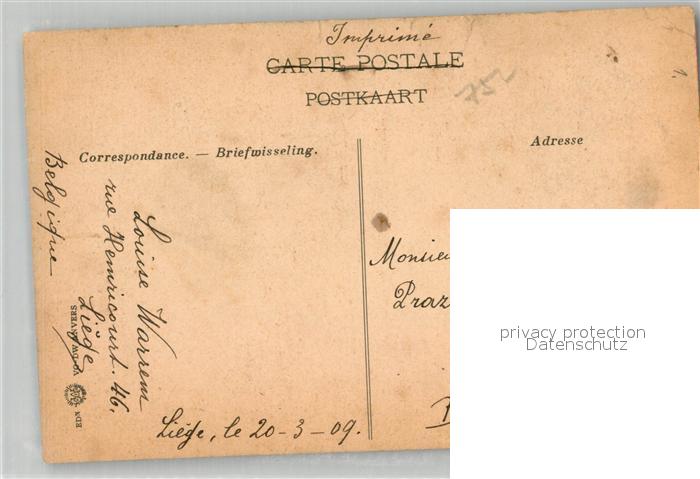 Imprimé
CARTE POSTALE
POSTKAART
752
Correspondance. — Briefwisseling.
Adresse
Louise Warrem
rue Hemricourt. 46.
Liége
Belgique
Liége, le 20-3-09.
Monsieu
Praz
privacy protection
Datenschutz